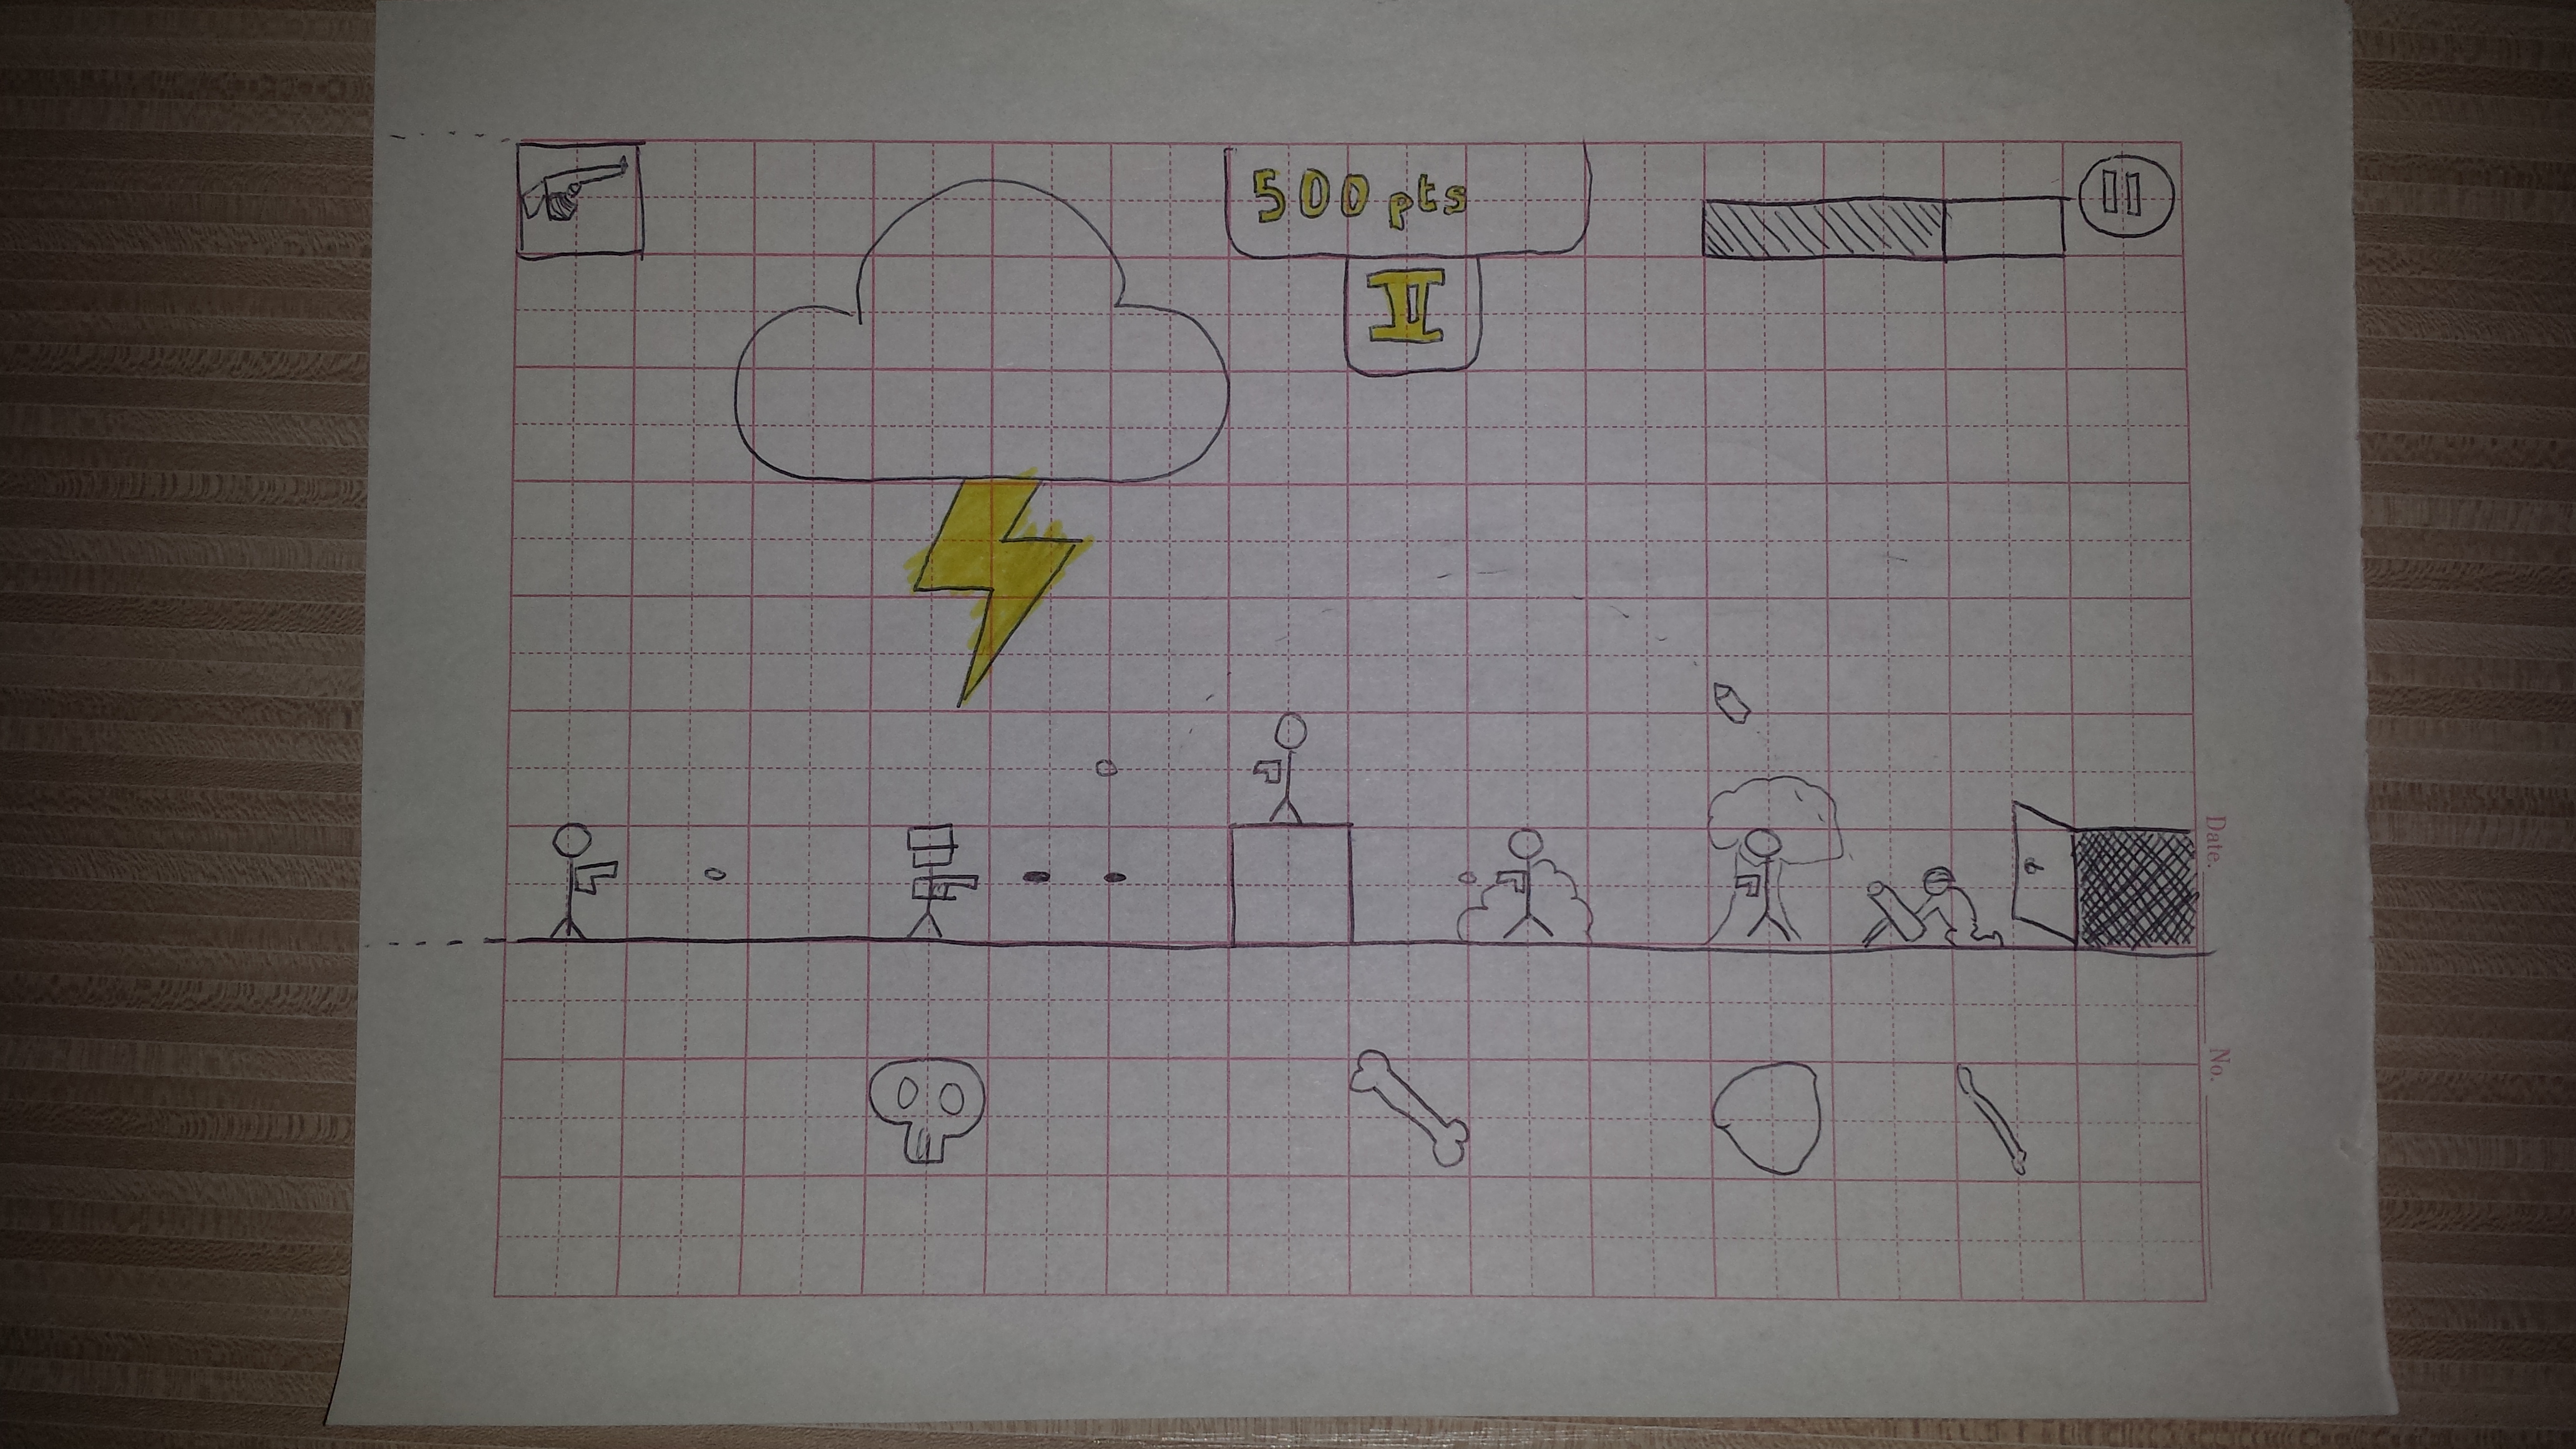 500 pts
II
Date.
No.